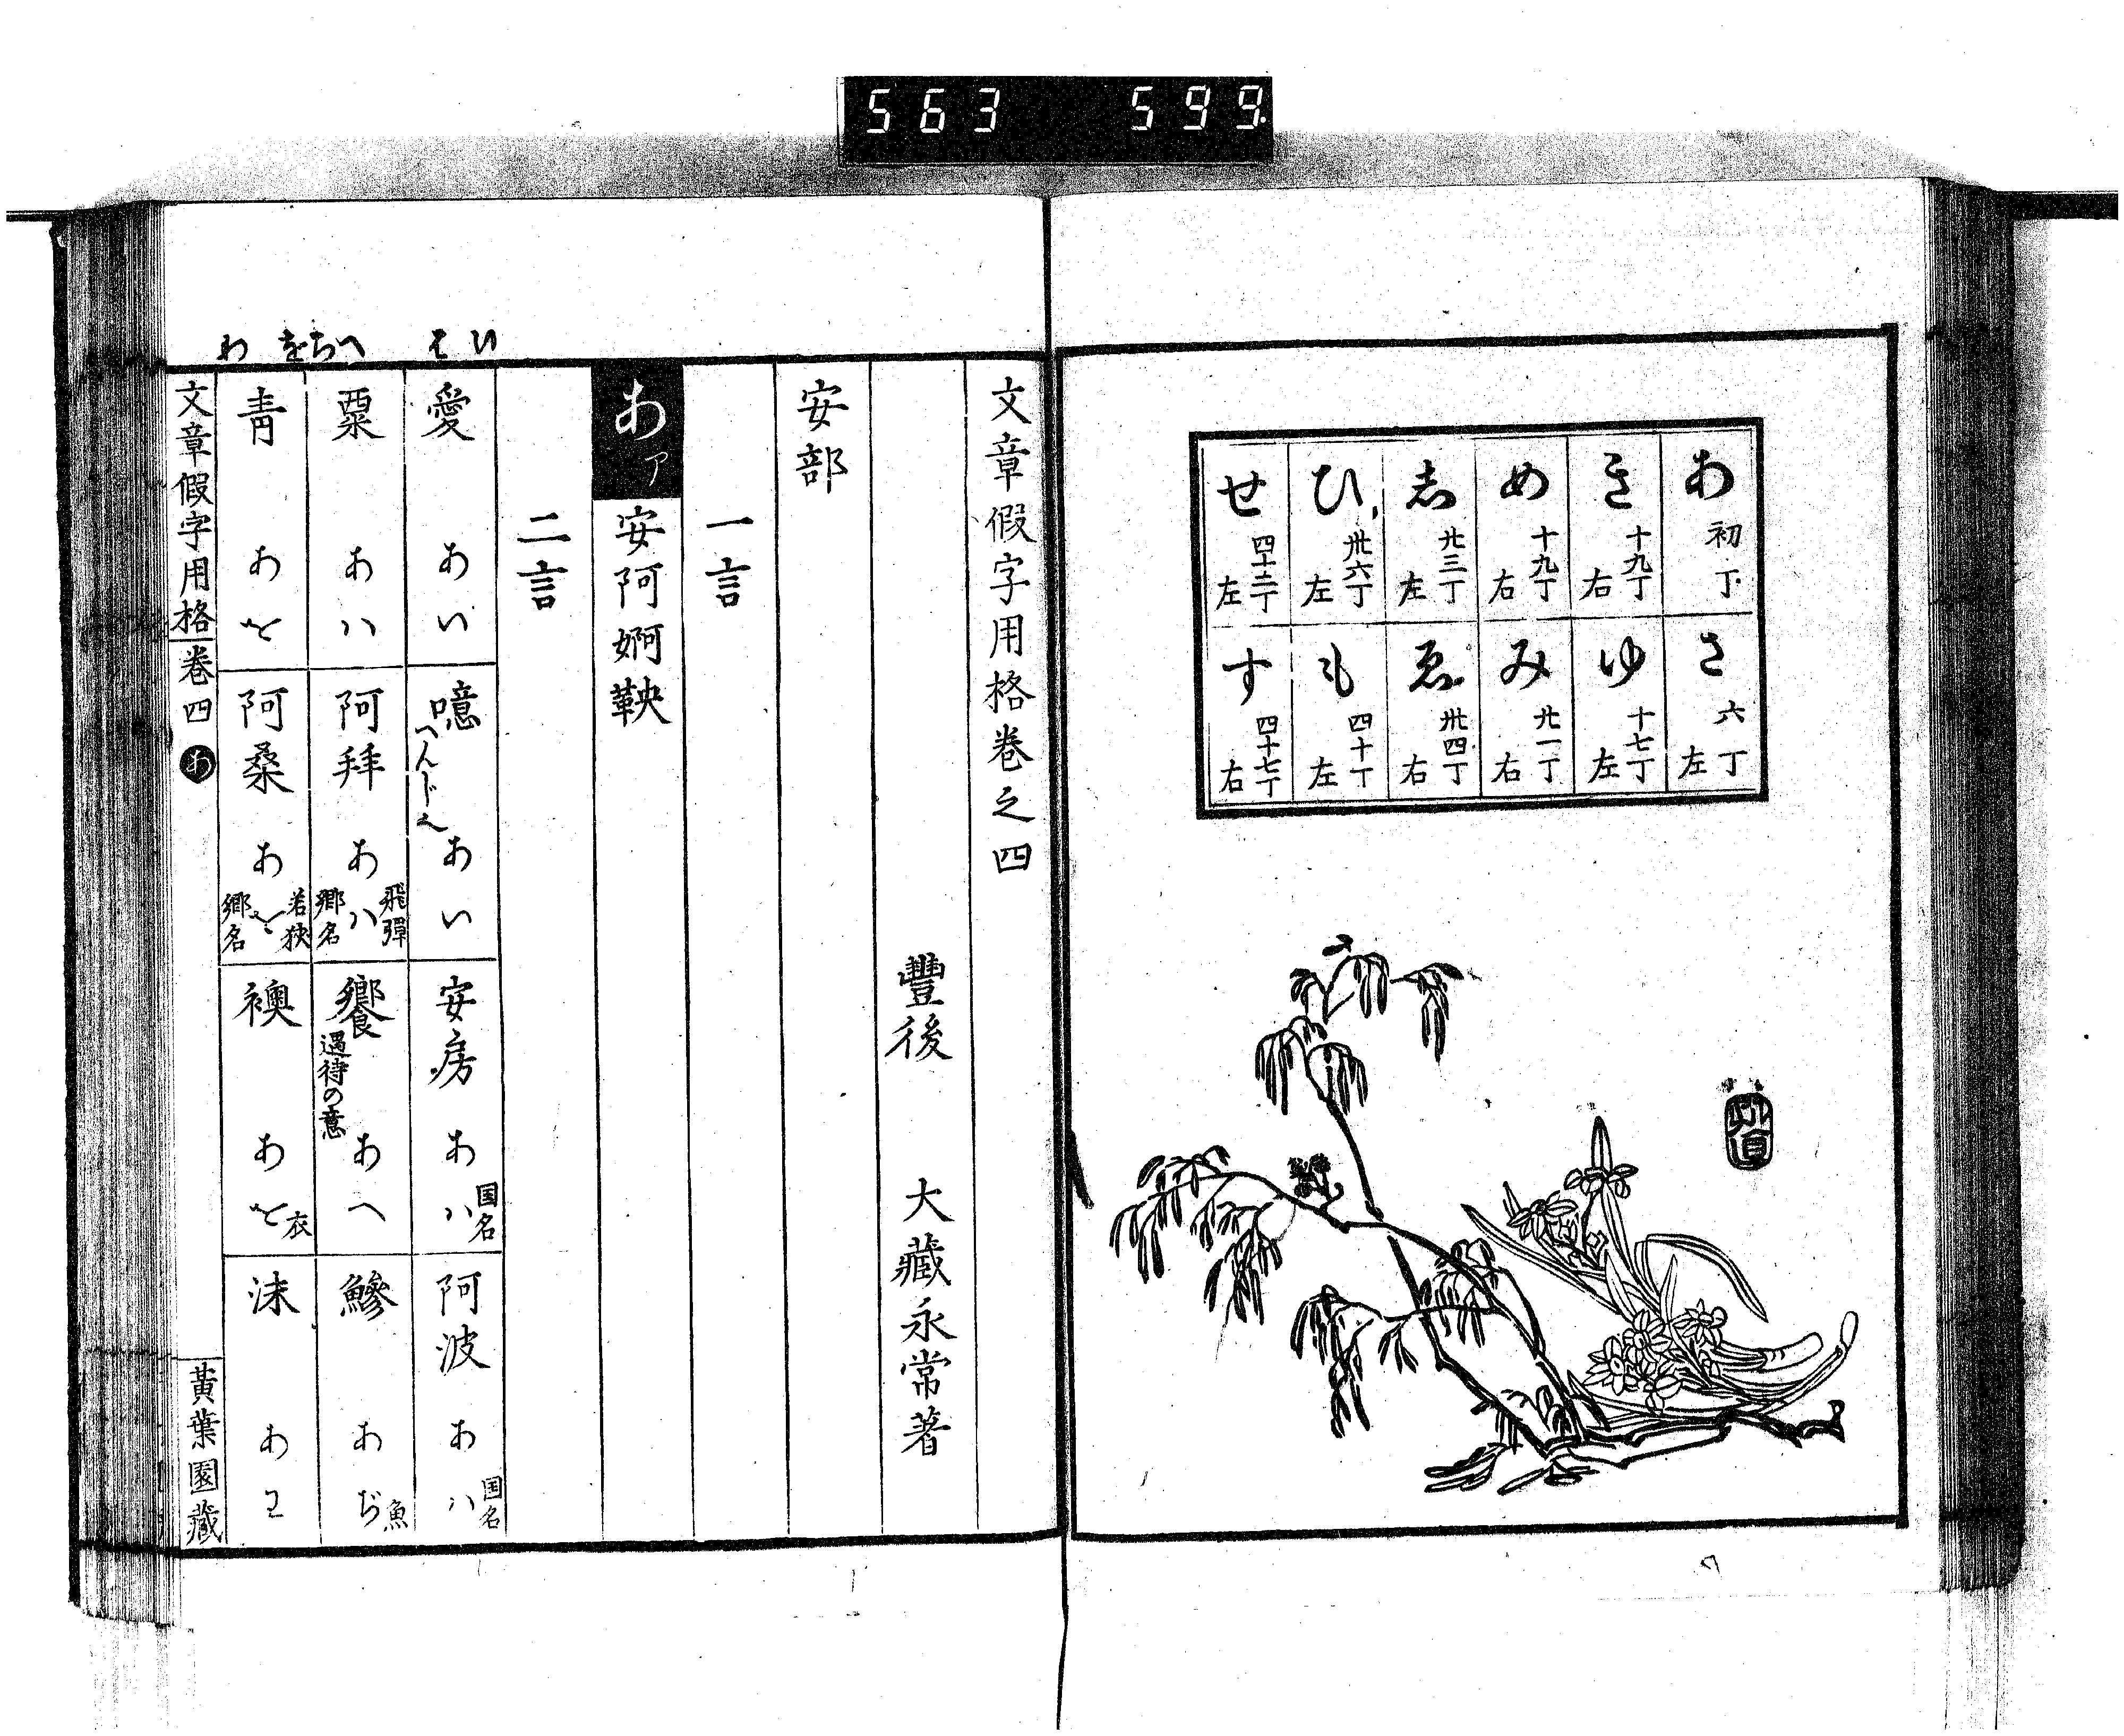 563 599
あ 初丁
き 十九丁右
め 十九丁右
し 廿三丁左
ひ 卅六丁左
せ 四十二丁左
さ 六丁左
ゆ 十七丁左
み 廿一丁右
ゑ 卅四丁右
も 四十丁左
す 四十七丁右
文章假字用格卷之四
豐後 大藏永常著
安部
一言
あア 安阿婀鞅
二言
いはへちをわ
愛 あい
噫 へんじ之 あい
安房 あハ 国名
阿波 あハ 国名
粟 あハ
阿拜 あハ 飛彈郷名
饗 遇待の意 あへ
鰺 あぢ 魚
青 あを
阿桑 あを 若狹郷名
襖 あを 衣
沫 あわ
文章假字用格 卷四 あ 黃葉園藏